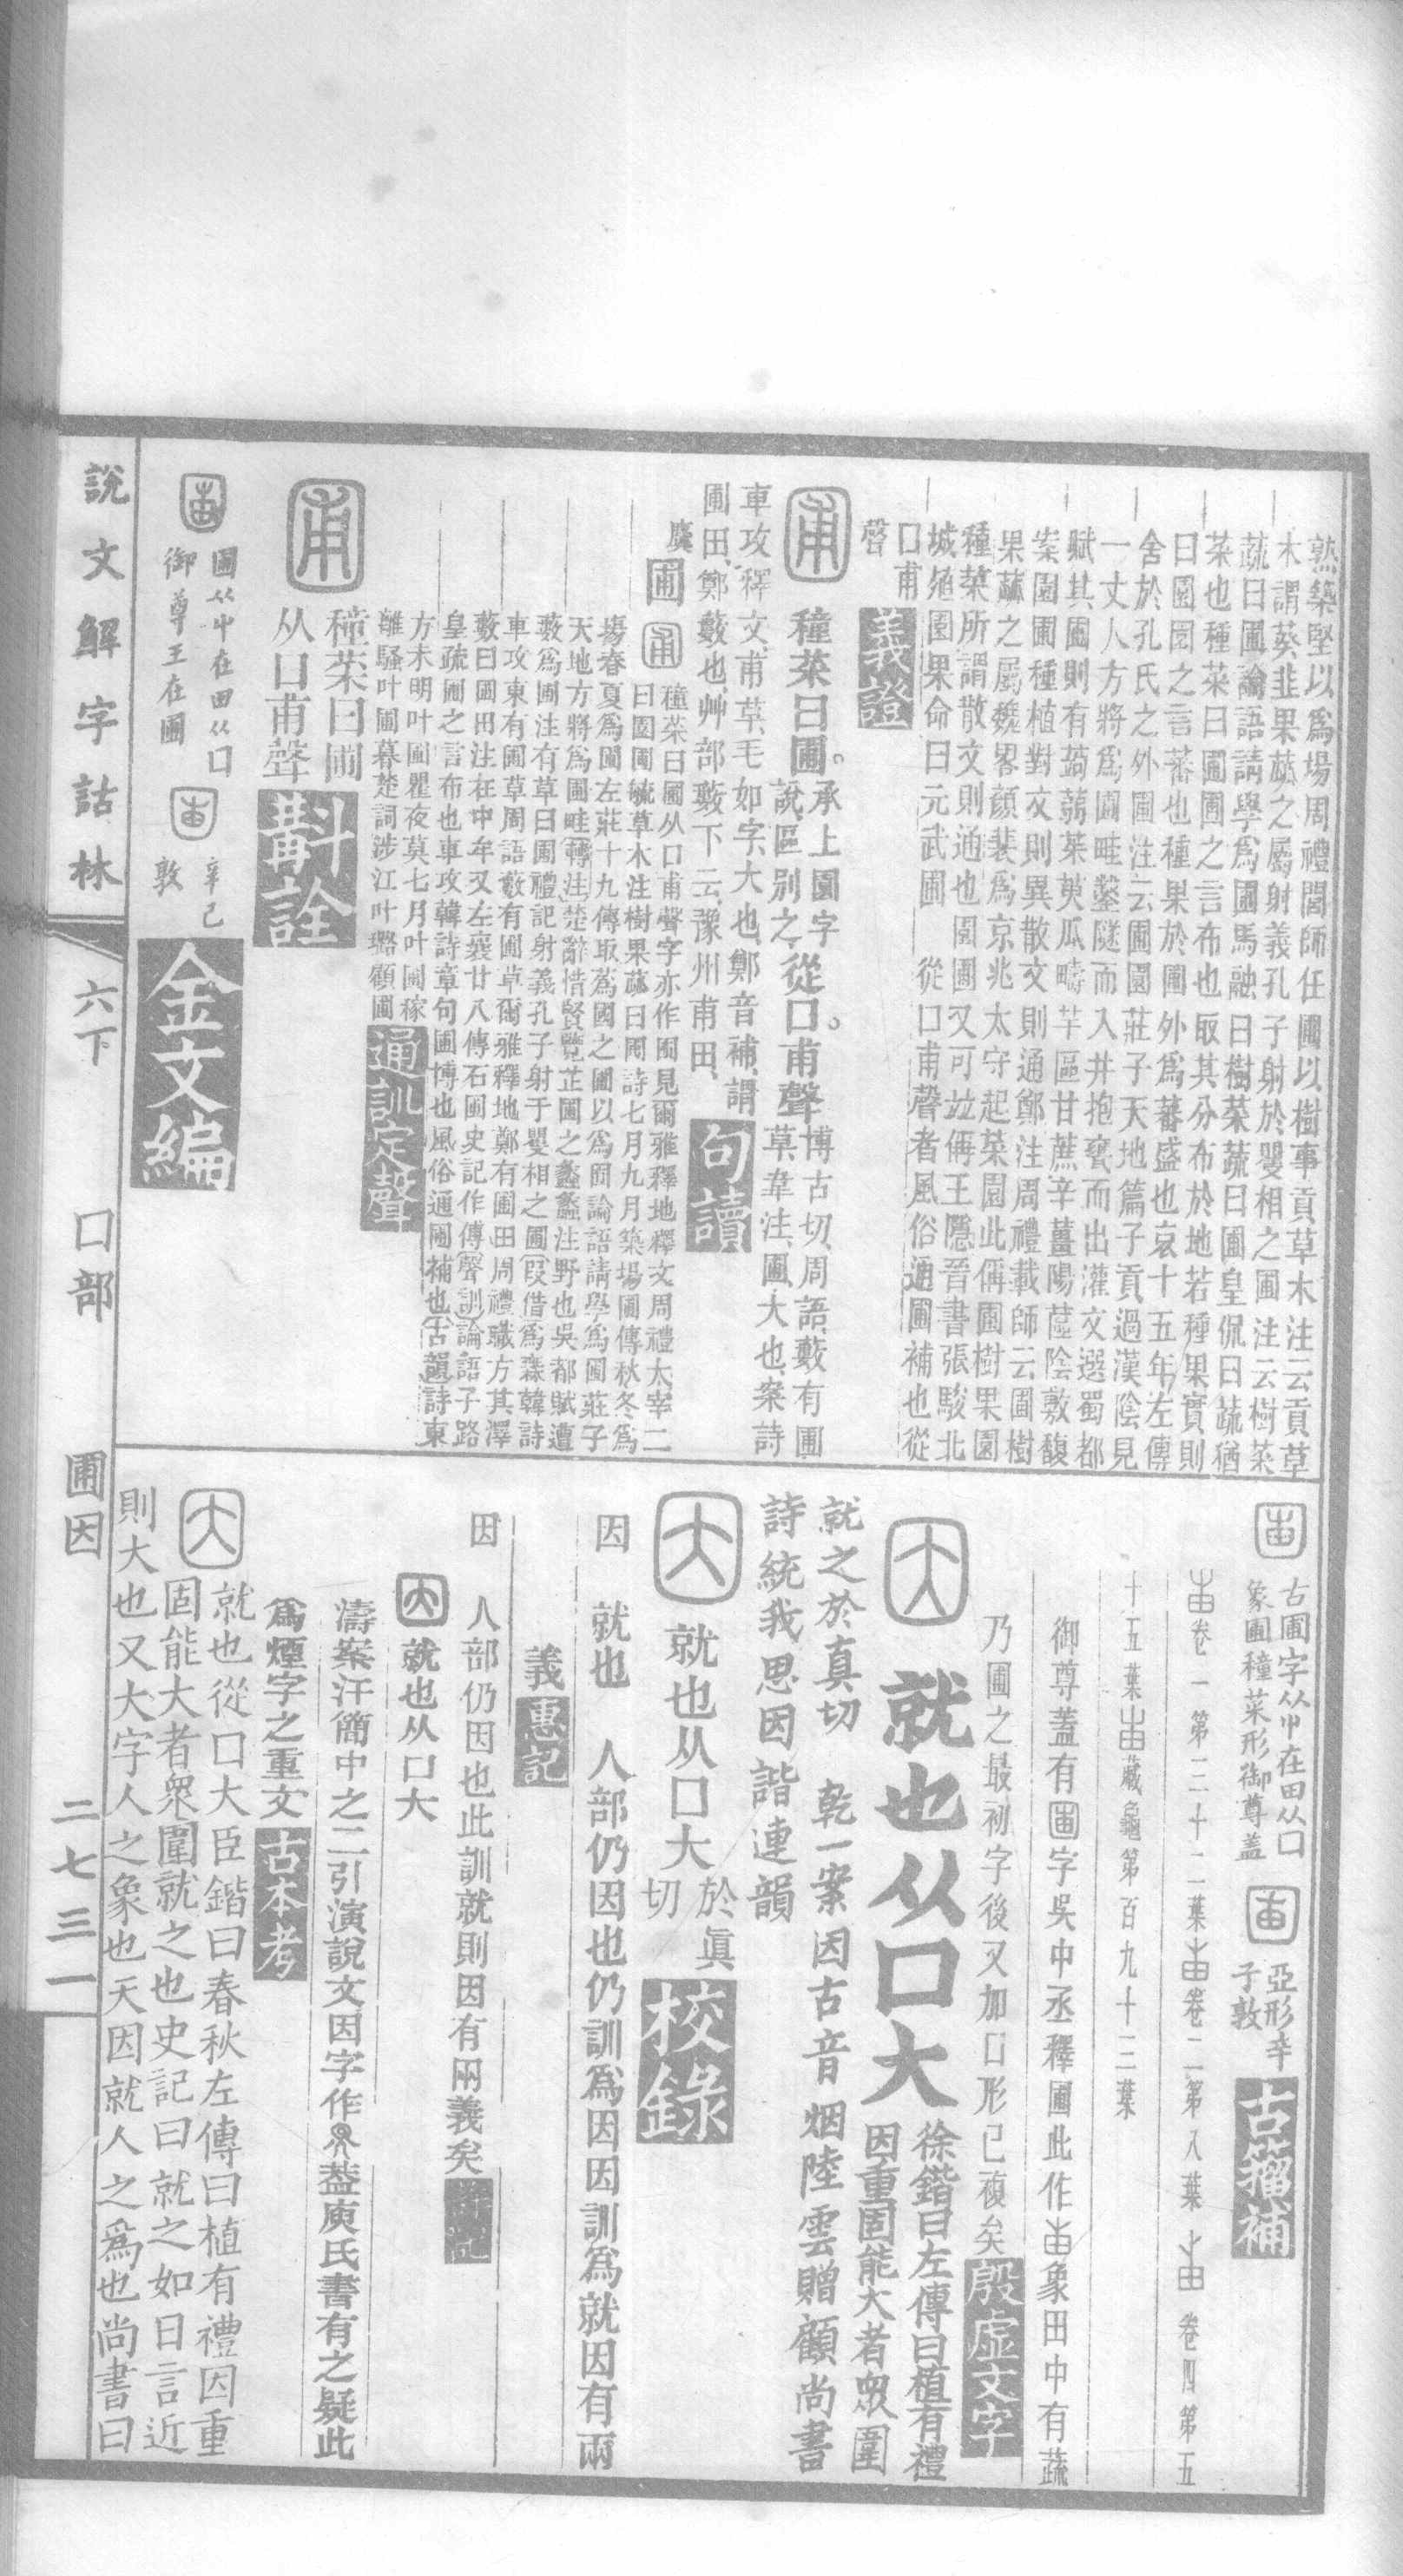 熟築堅以爲場周禮閭師任圃以樹事貢草木注云貢草
木謂葵韭果蓏之屬射義孔子射於矍相之圃注云樹菜
蔬曰圃論語請學爲圃馬融曰樹菜蔬曰圃皇侃曰蔬猶
菜也種菜曰圃圃之言布也取其分布於地若種果實則
曰園園之言蕃也種果於圃外爲蕃盛也哀十五年左傳
舍於孔氏之外圃注云圃園莊子天地篇子貢過漢陰見
一丈人方將爲圃畦鑿隧而入井抱甕而出灌文選蜀都
賦其圃則有蒟蒻茱萸瓜疇芋區甘蔗辛薑陽蓲陰敷馥
案園圃種植對文則異散文則通鄭注周禮載師云圃樹
果蓏之屬魏畧顔裴爲京兆太守起菜園此偁圃樹果園
種菜所謂散文則通也園圃又可竝偁王隱晉書張駿北
城殖園果命曰元武圃 從口甫聲者風俗通圃補也從
口甫
聲
義證
種菜曰圃。承上園字說區別之、從口。甫聲博古切、周語、藪有圃草、韋注、圃、大也、案詩
車攻釋文、甫草、毛如字、大也、鄭音補、謂
圃田、鄭藪也、艸部藪下云、豫州甫田、
句讀
圃 種菜曰圃从口甫聲字亦作囿見爾雅釋地釋文周禮太宰二
曰園圃毓草木注樹果蓏曰圃詩七月九月築場圃傳秋冬爲
場春夏爲圃左莊十九傳取蒍國之圃以爲囿論語請學爲圃莊子
天地方將爲圃畦轉注楚辭惜賢覽芷圃之蠡蠡注野也吳都賦遭
藪爲圃注有草曰圃禮記射義孔子射于矍相之圃叚借爲溥韓詩
車攻東有圃草周語藪有圃草爾雅釋地鄭有圃田周禮職方其澤
藪曰圃田注在中牟又左襄廿八傳石圃史記作傅聲訓論語子路
皇疏圃之言布也車攻韓詩章句圃博也風俗通圃補也古韻詩東
方未明叶圃瞿夜莫七月叶圃稼
離騷叶圃暮楚詞涉江叶璐顧圃
通訓定聲
穜菜曰圃
从口甫聲
斠詮
圃从屮在田从口
御尊王在圃
辛巳
敦
金文編
說文解字詁林
六下
口部
圃因
二七三一
古圃字从屮在田从口
象圃種菜形御尊蓋
亞形辛
子敦
古籀補
卷一第二十二葉 卷二第八葉 卷四第五
十五葉 藏龜第百九十三葉
御尊蓋有 字吳中丞釋圃此作 象田中有蔬
乃圃之最初字後又加口形已複矣
殷虛文字
就也从口大徐鍇曰左傳曰植有禮因重固能大者衆圍
就之於真切 乾一案因古音烟陸雲贈顧尚書
詩統我思因諧連韻
就也从口大於眞切
校錄
因 就也 人部仍因也仍訓爲因因訓爲就因有兩
義
惠記
因 人部仍因也此訓就則因有兩義矣
就也从口大
濤案汗簡中之二引演說文因字作 葢庾氏書有之疑此
爲煙字之重文
古本考
就也從口大臣鍇曰春秋左傳曰植有禮因重
固能大者衆圍就之也史記曰就之如日言近
則大也又大字人之象也天因就人之爲也尚書曰